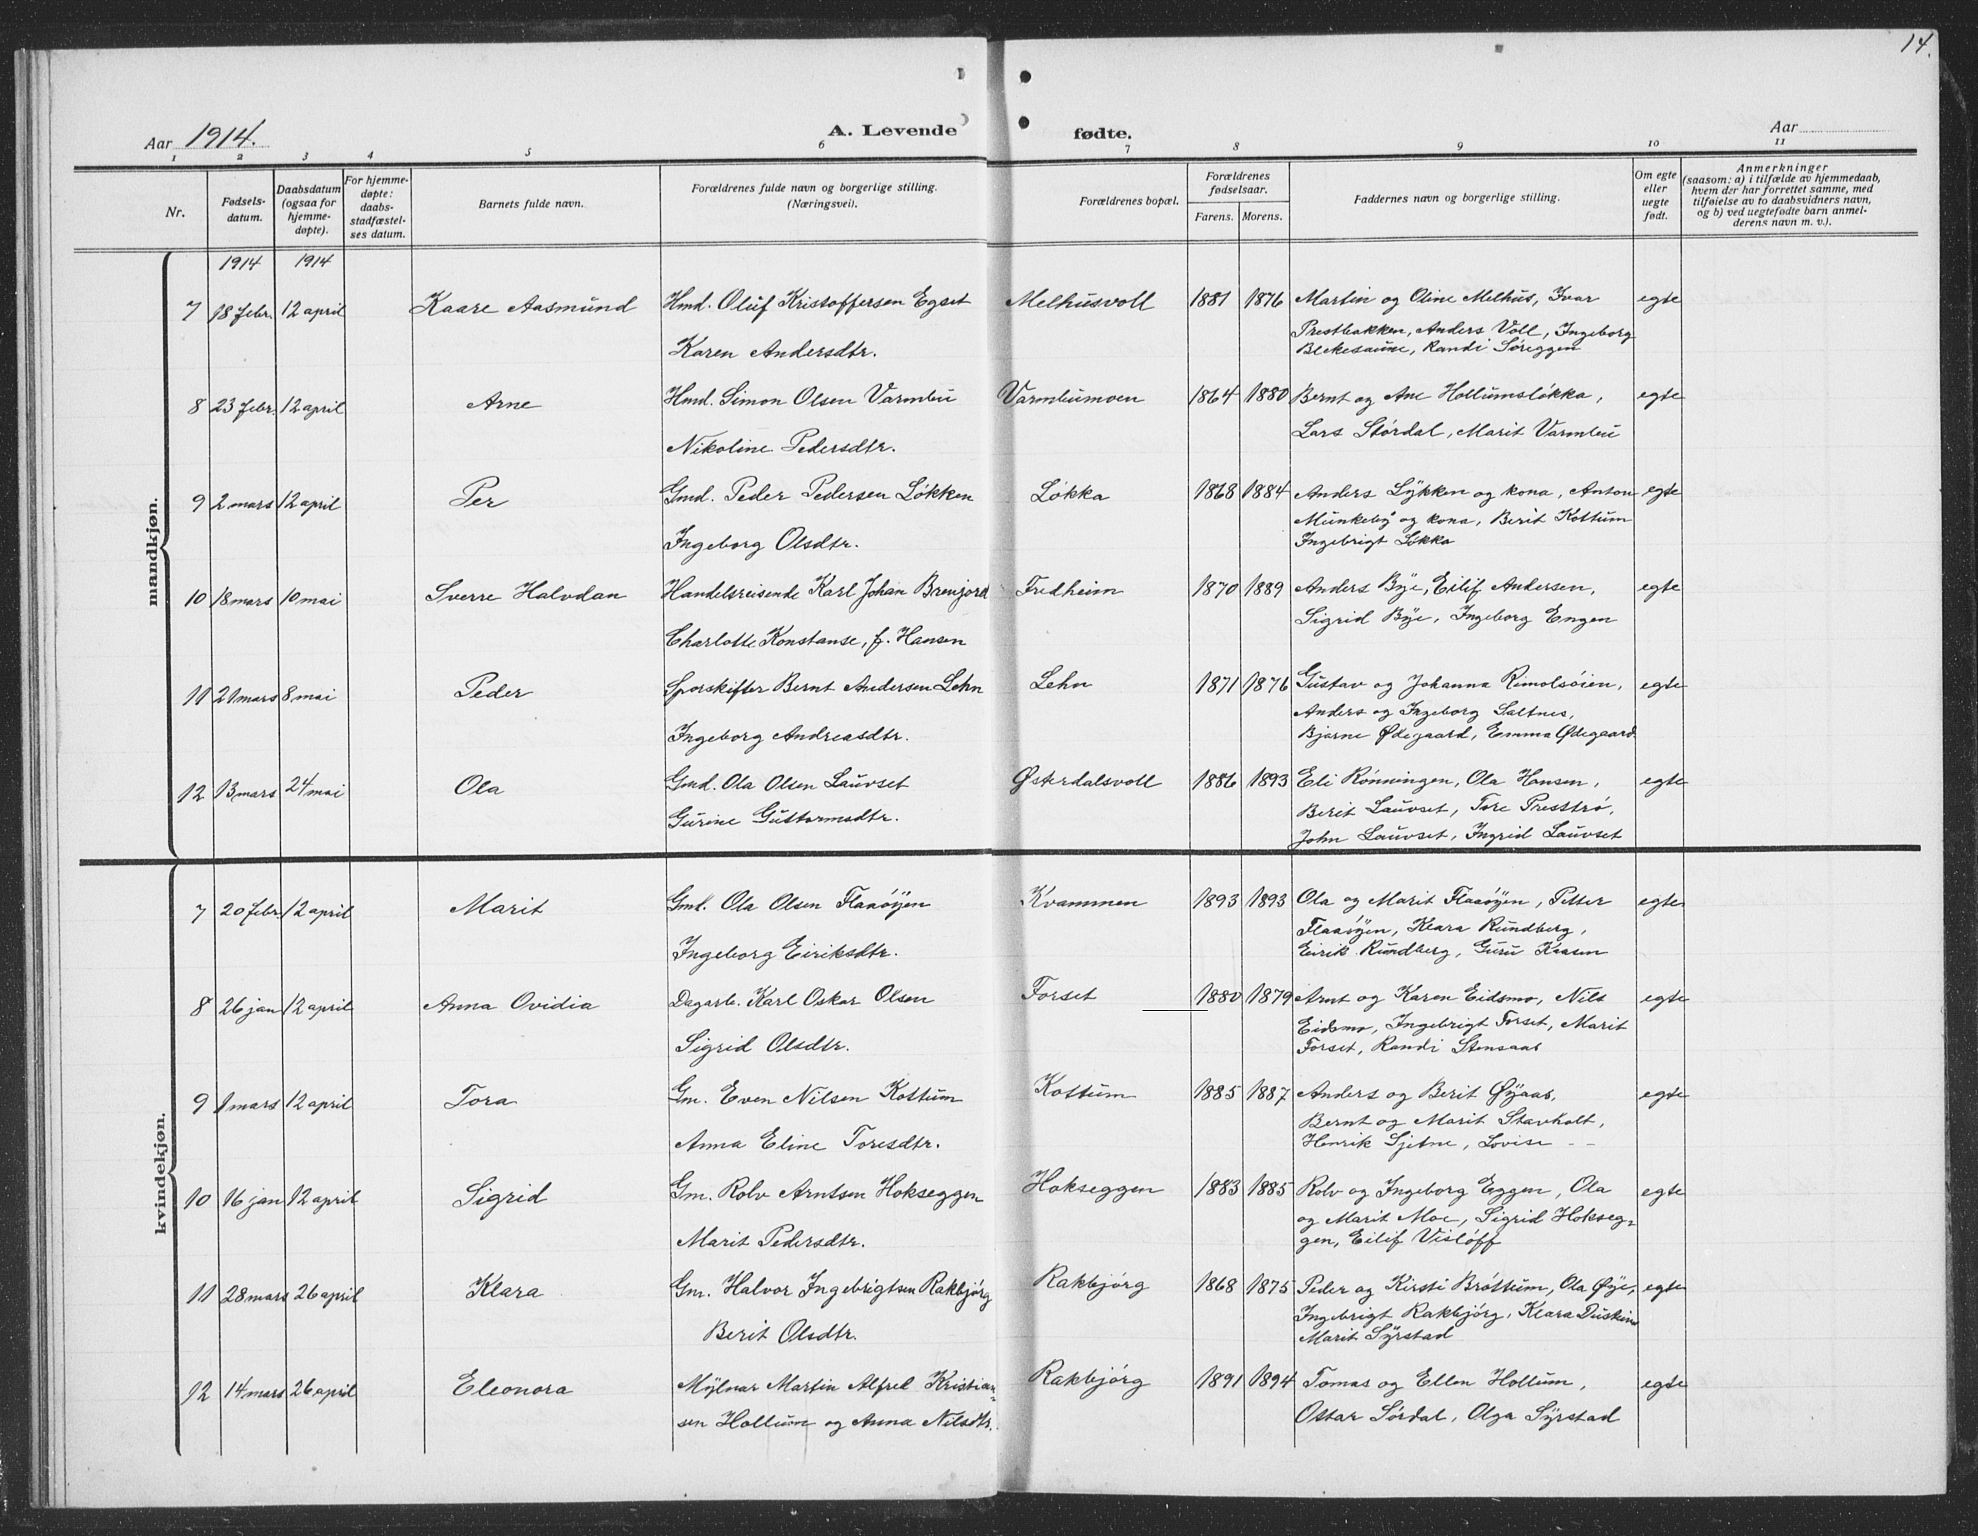 14.
Aar 1914.
A. Levende
fødte.
Aar
1 2 3 4 5 6 7 8 9 10 11
Nr.
Fødsels-
datum.
Daabsdatum
(ogsaa for
hjemme-
døpte).
For hjemme-
døpte:
daabs-
stadfæstel-
ses datum.
Barnets fulde navn.
Forældrenes fulde navn og borgerlige stilling.
(Næringsvei).
Forældrenes bopæl.
Forældrenes
fødselsaar.
Farens. Morens.
Faddernes navn og borgerlige stilling.
Om egte
eller
uegte
født.
Anmerkninger
(saasom: a) i tilfælde av hjemmedaab,
hvem der har forrettet samme, med
tilføielse av to daabsvidners navn,
og b) ved uegtefødte barn anmel-
derens navn m. v.).
1914 1914
mandkjøn.
7 18 febr. 12 april Kaare Aasmund Hmd. Oluf Kristoffersen Egset Melhusvoll 1881 1876 Martin og Oline Melhus, Ivar egte
Prestbakken, Anders Voll, Ingeborg
Karen Andersdtr. Blekesaune, Randi Søreggen
8 23 febr. 12 april Arne Hmd. Simon Olsen Varmbu Varmbumoen 1864 1880 Bernt og Ane Hollumsløkka, egte
Nikoline Pedersdtr. Lars Størdal, Marit Varmbu
9 2 mars 12 april Per Gmd. Peder Pedersen Løkken Løkka 1868 1884 Anders Lykken og kona, Anton egte
Munkeby og kona, Berit Kottum
Ingeborg Olsdtr. Ingebrigt Løkka
10 18 mars 10 mai Sverre Halvdan Handelsreisende Karl Johan Brenjord Fredheim 1870 1889 Anders Bye, Eilif Andersen, egte
Charlotte Konstanse, f. Hansen Sigrid Bye, Ingeborg Engen
11 21 mars 8 mai Peder Sporskifter Bernt Andersen Lehn Lehn 1871 1876 Gustav og Johanna Rimolsøien, egte
Anders og Ingeborg Saltnes,
Ingeborg Andreasdtr. Bjarne Ødegaard, Emma Ødegaard
12 13 mars 24 mai Ola Gmd. Ola Olsen Lauvset Østerdalsvoll 1886 1893 Eli Rønningen, Ola Hansen, egte
Gurine Guttormsdtr. Berit Lauvset, Tore Presttrø,
John Lauvset, Ingrid Lauvset
kvindekjøn.
7 20 febr. 12 april Marit Gmd. Ola Olsen Flaaøyen Kvammen 1893 1893 Ola og Marit Flaaøyen, Petter egte
Flaaøyen, Klara Rundberg,
Ingeborg Eiriksdtr. Eirik Rundberg, Guru Kaasen
8 26 jan 12 april Anna Ovidia Dagarb. Karl Oskar Olsen Forset 1880 1879 Arnt og Karen Eidsmo, Nils egte
Eidsmo, Ingebrigt Forset, Marit
Sigrid Olsdtr. Forset, Randi Stensaas
9 1 mars 12 april Tora Gm. Even Nilsen Kottum Kottum 1885 1887 Anders og Berit Øyaas, egte
Bernt og Marit Stavholt,
Anna Eline Toresdtr. Henrik Sjetne, Lovise - -
10 16 jan 12 april Sigrid Gm. Rolv Arntsen Hokseggen Hokseggen 1883 1885 Rolv og Ingeborg Eggen, Ola egte
og Marit Moe, Sigrid Hokseg-
Marit Pedersdtr. gen, Eilif Visløff
11 28 mars 26 april Klara Gm. Halvor Ingebrigtsen Rakbjørg Rakbjørg 1868 1875 Peder og Kirsti Brøttum, Ola Øye, egte
Ingebrigt Rakbjørg, Klara Duskin
Berit Olsdtr. Marit Syrstad
12 14 mars 26 april Eleonora Mylnar Martin Alfred Kristian- Rakbjørg 1891 1894 Tomas og Ellen Hollum, egte
sen Hollum og Anna Nilsdtr. Ottar Sørdal, Olga Syrstad